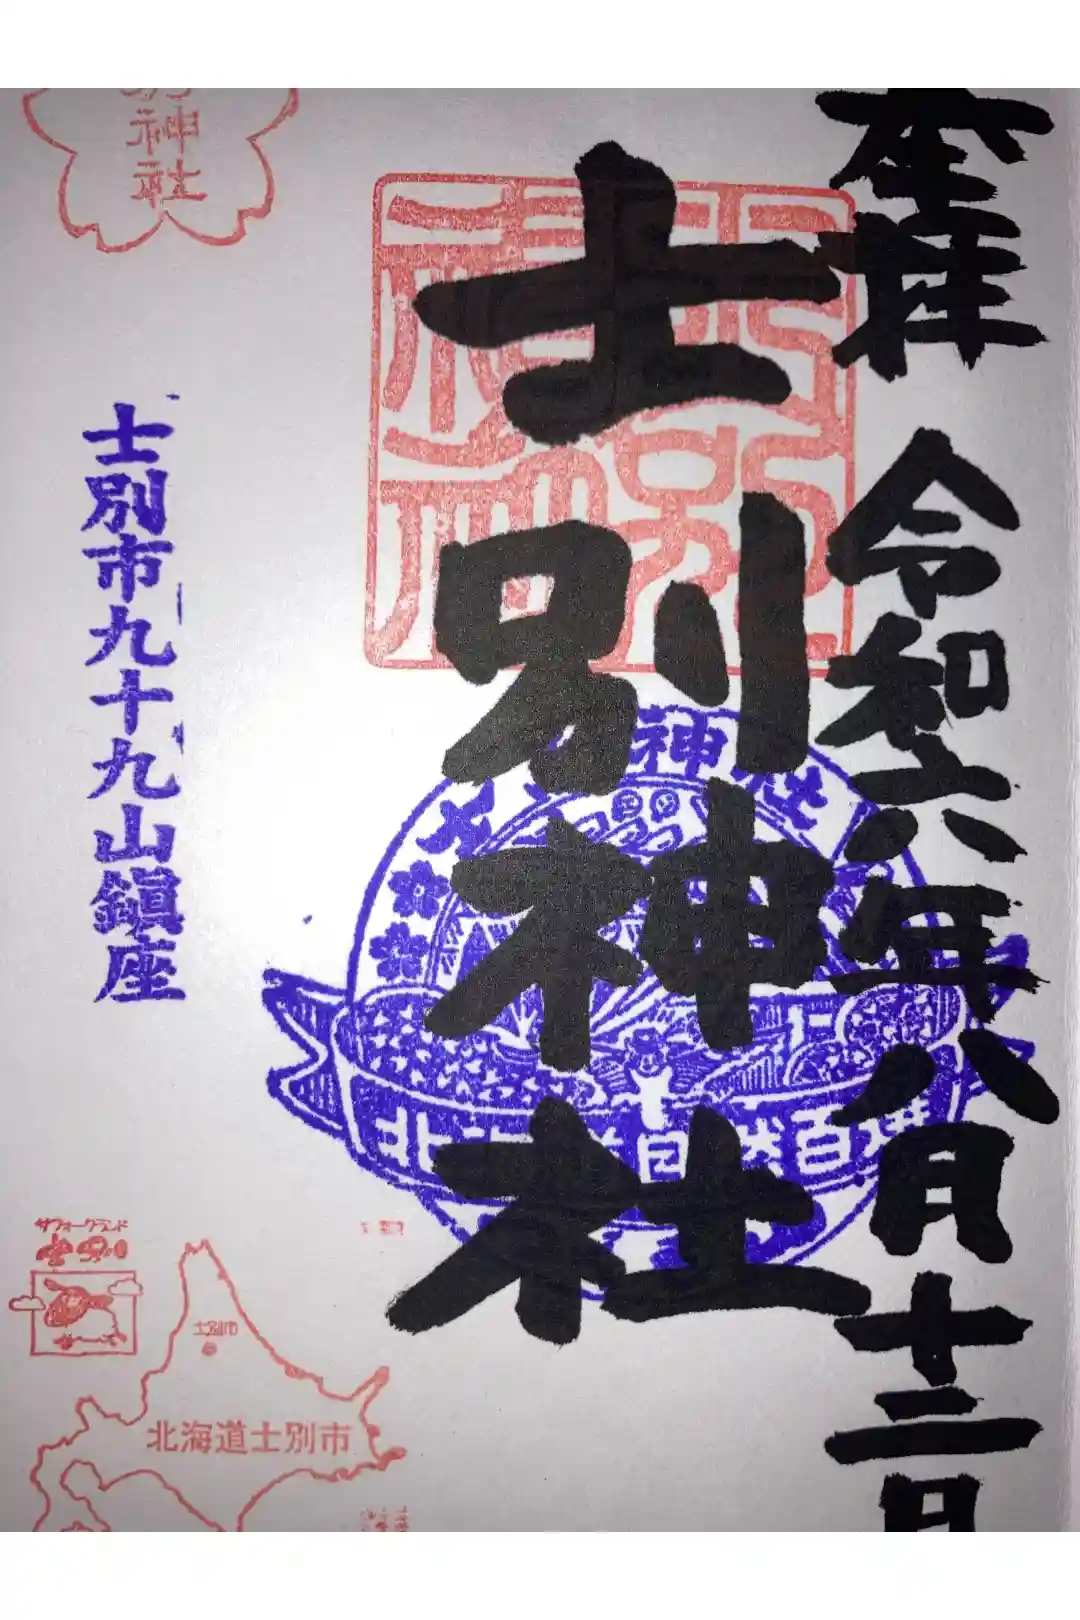 奉拝 令和六年八月十二日
士別神社
士別市九十九山鎮座
神社
神社
サフォークランド
士別市
北海道士別市